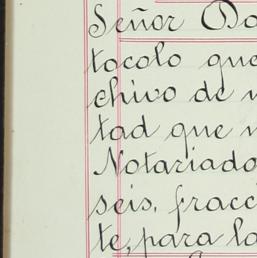 Señor Do
tocolo que
chivo de
tad que
Notariado
seis, fracc
te, para la